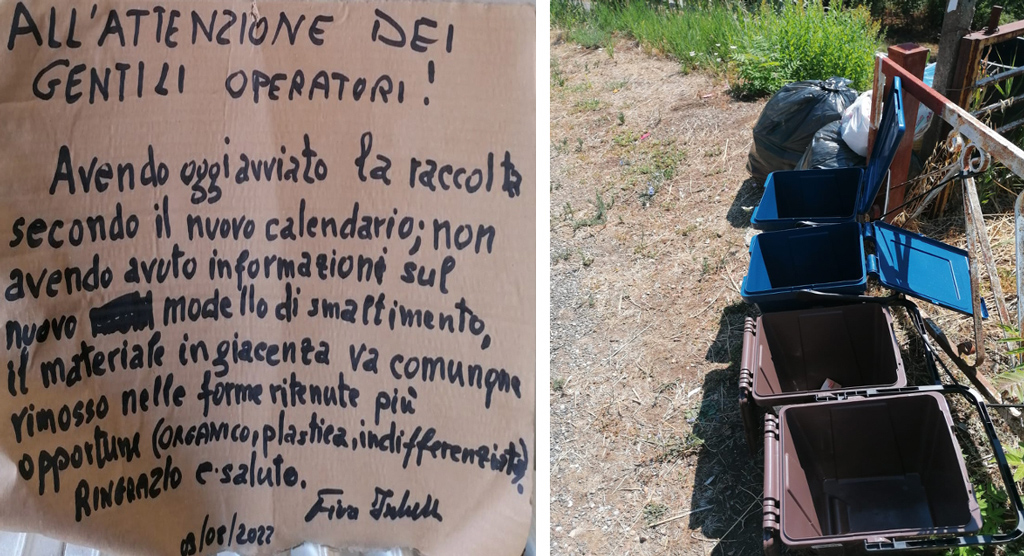 ALL'ATTENZIONE DEI
GENTILI OPERATORI!
Avendo oggi avviato la raccolta
secondo il nuovo calendario; non
avendo avuto informazioni sul
nuovo modello di smaltimento,
il materiale in giacenza va comunque
rimosso nelle forme ritenute più
opportune (ORGANICO, plastica, indifferenziata).
RINGRAZIO e saluto.